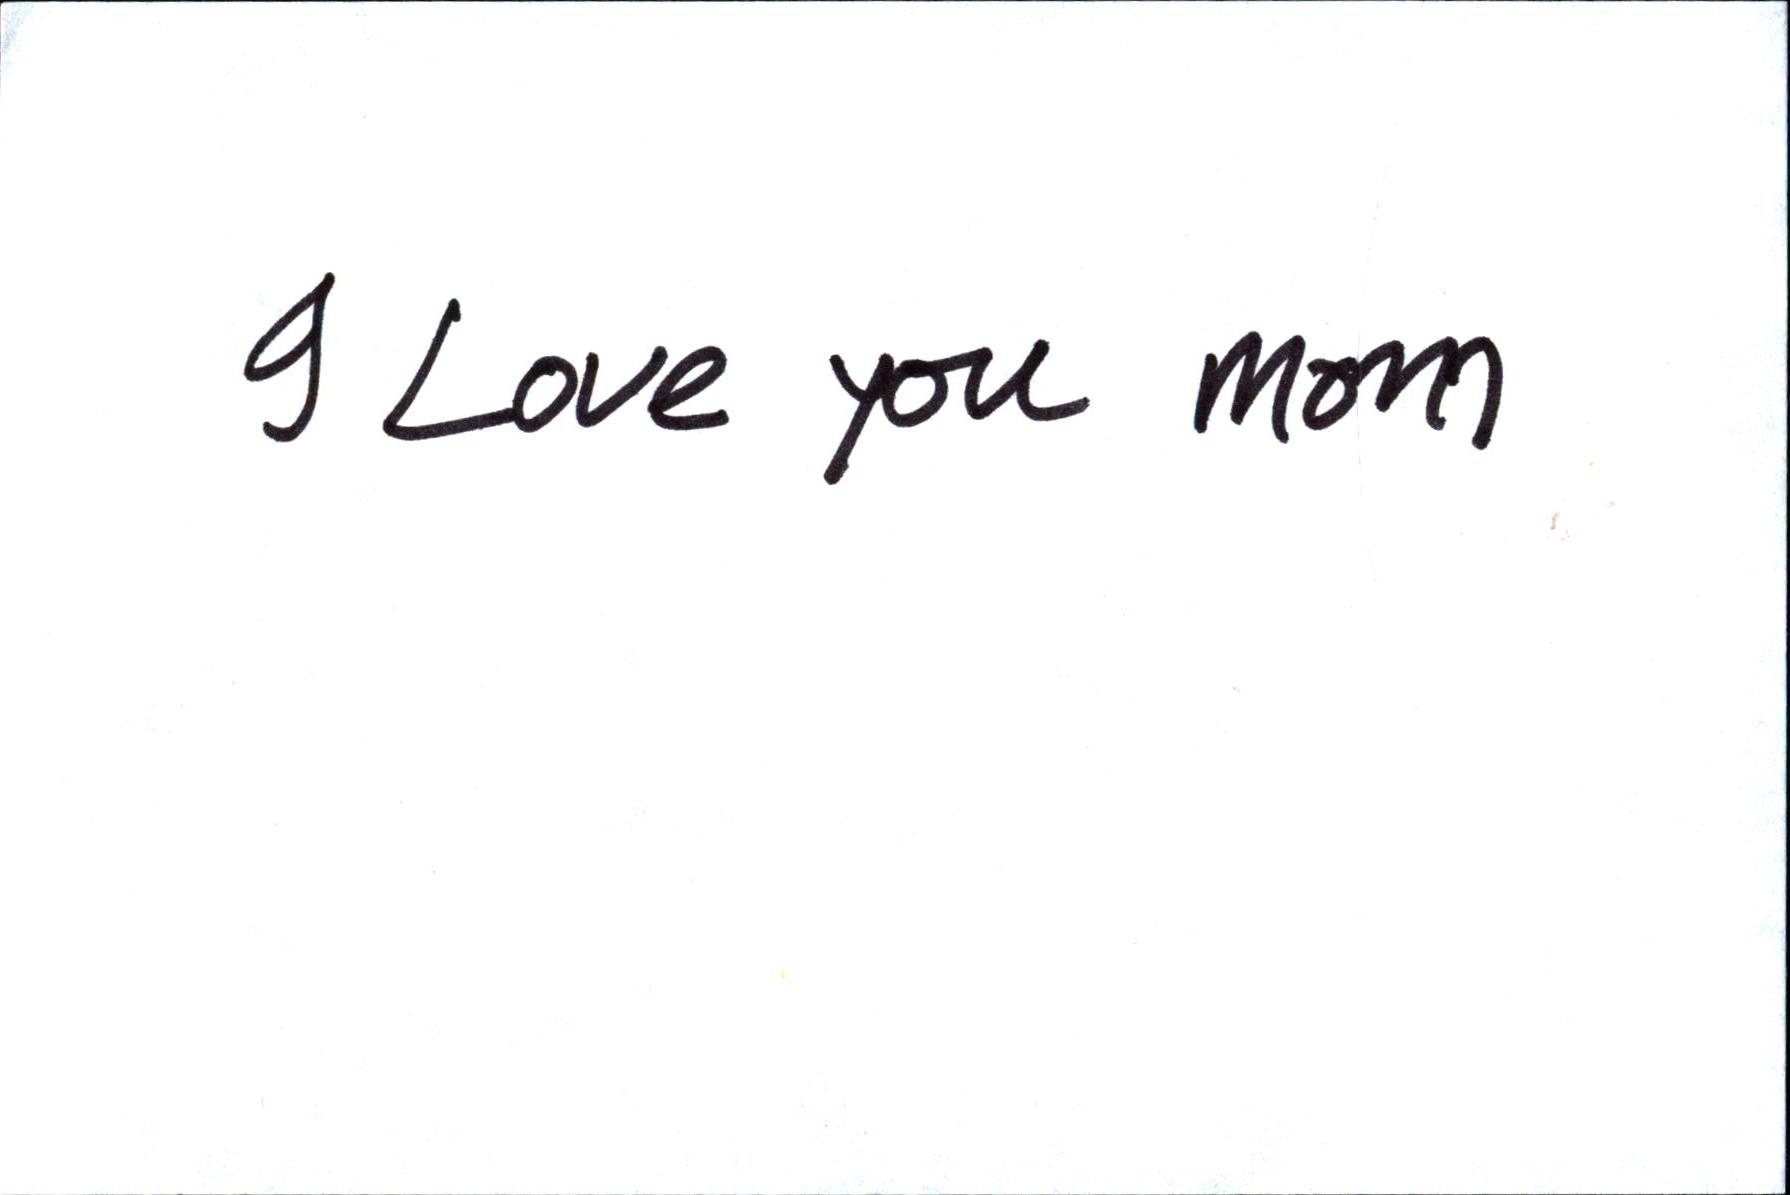 I Love you Mom